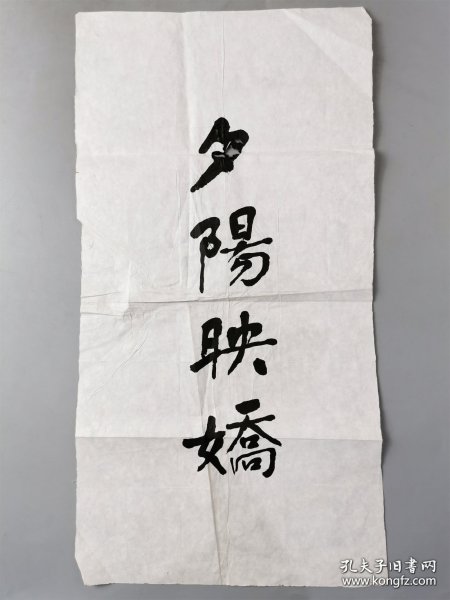 夕陽映嬌
孔夫子旧书网
www.kongfz.com